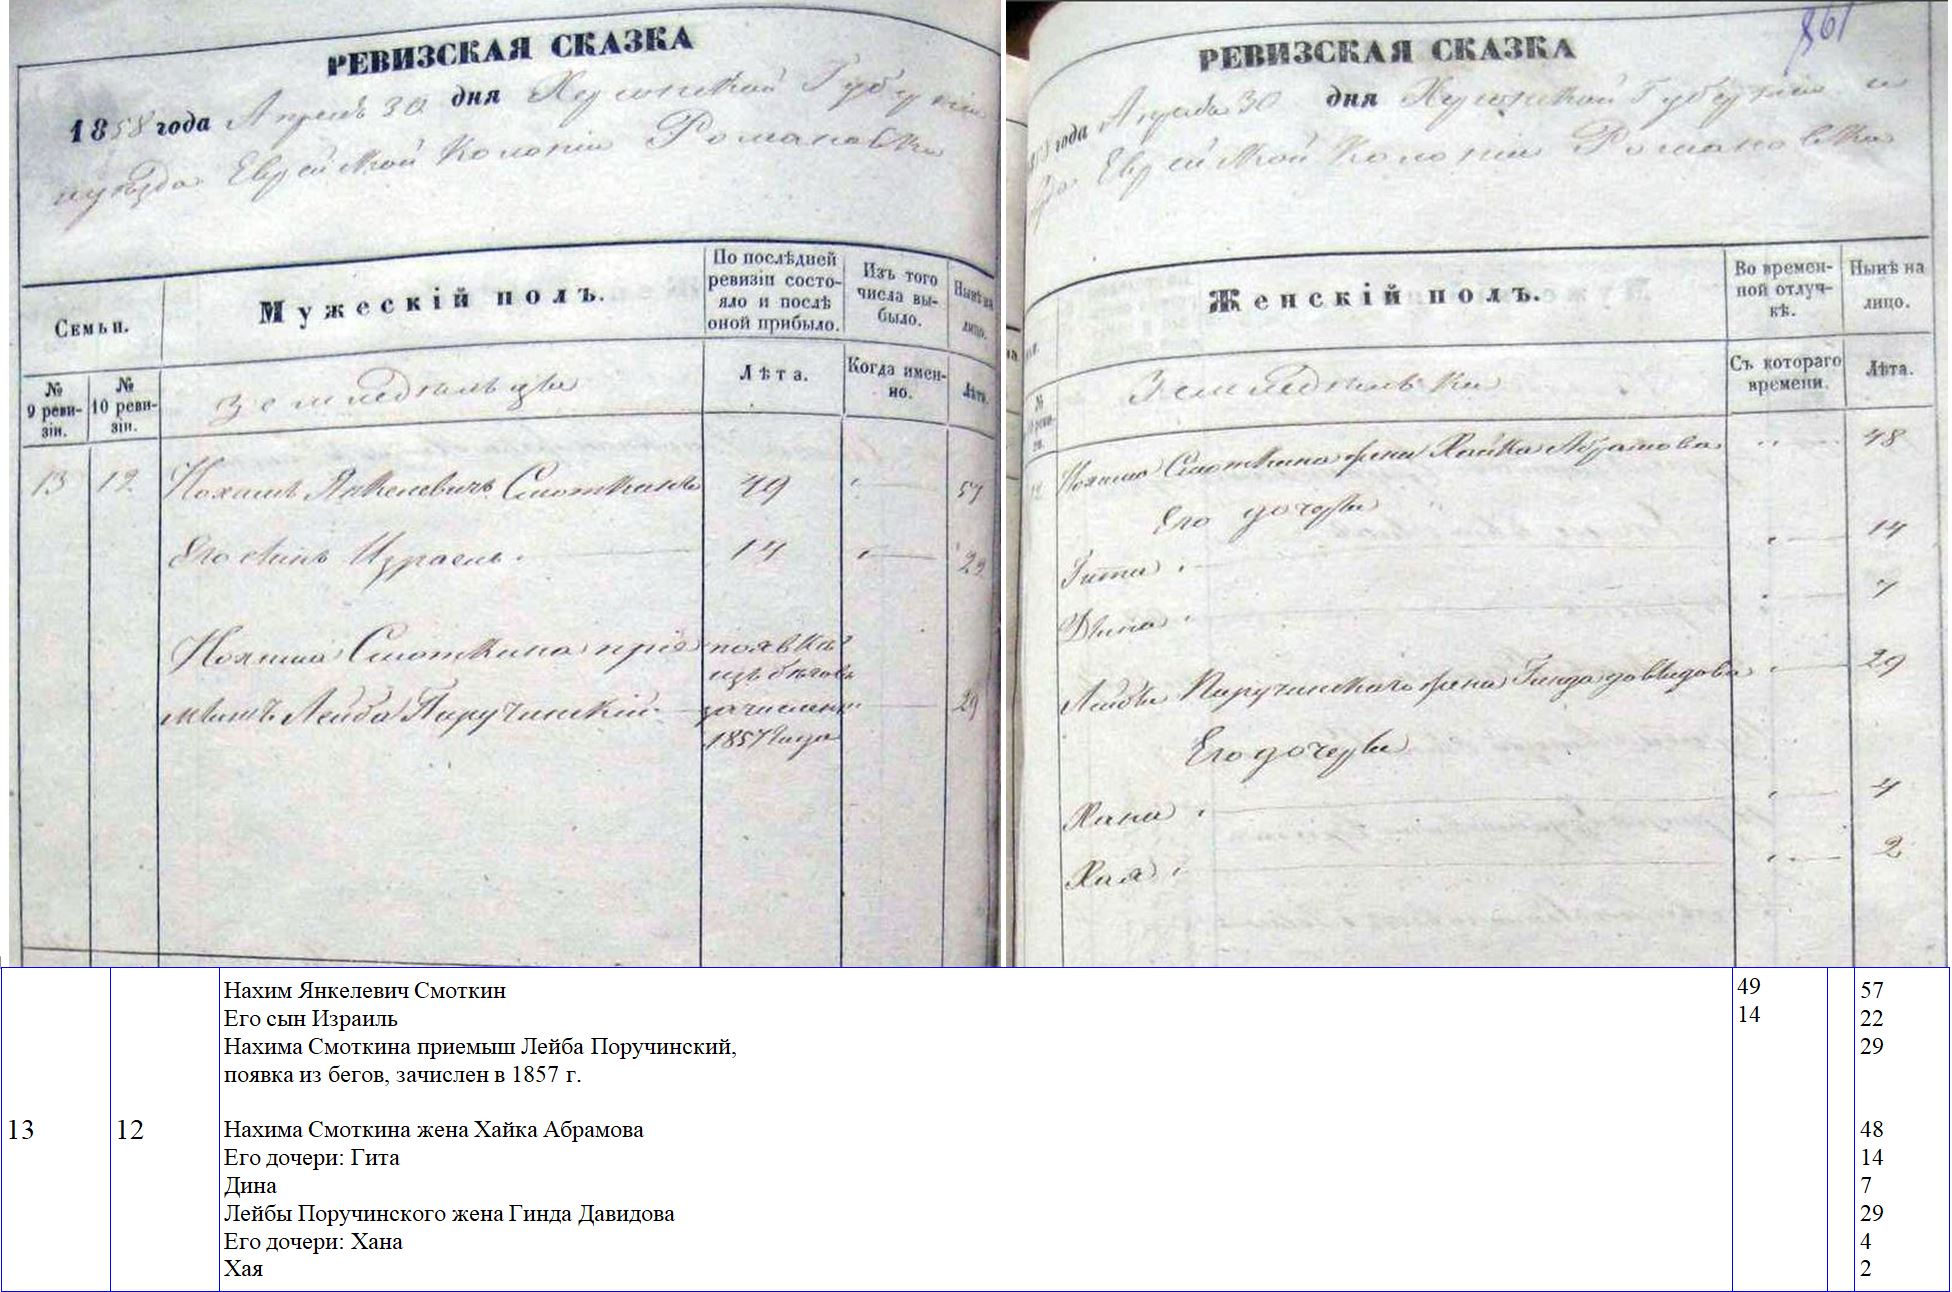 РЕВИЗСКАЯ СКАЗКА
1858 года Апреля 30 дня Херсонской Губерніи
и уѣзда Еврейской Колоніи Романовки
Семьи.
Мужескій полъ.
По послѣдней ревизіи состояло и послѣ оной прибыло.
Изъ того числа выбыло.
Нынѣ на лицо.
№ 9 ревизіи.
№ 10 ревизіи.
Земледѣльцы
Лѣта.
Когда именно.
Лѣта.
13 12 Нохимъ Янкелевичъ Смоткинъ 49 57
Его сынъ Израель 14 22
Нохима Смоткина пріе появка
изъ бѣговъ
мышъ Лейба Паручинскій зачисленъ 29
1857 года
861
РЕВИЗСКАЯ СКАЗКА
года Апреля 30 дня Херсонской Губерніи и
Еврейской Колоніи Романовки
Женскій полъ.
Во временной отлучкѣ.
Нынѣ на лицо.
Земледѣлки
Съ котораго времени.
Лѣта.
Нохима Смоткина жена Хайка Абрамова 48
Его дочери
Гита 14
Дина 7
Лейбы Паручинскаго жена Гинда Давидова 29
Его дочери
Хана 4
Хая 2
13 12
Нахим Янкелевич Смоткин 49 57
Его сын Израиль 14 22
Нахима Смоткина приемыш Лейба Поручинский, 29
появка из бегов, зачислен в 1857 г.
Нахима Смоткина жена Хайка Абрамова 48
Его дочери: Гита 14
Дина 7
Лейбы Поручинского жена Гинда Давидова 29
Его дочери: Хана 4
Хая 2